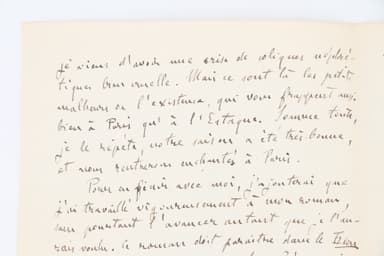 je viens d'avoir une crise de coliques néphré-
tiques bien cruelle. Mais ce sont là les petits
malheurs de l'existence, qui vous frappent aussi
bien à Paris qu'à l'Estaque. Somme toute,
je le répète, notre saison a été très bonne,
et nous rentrerons enchantés à Paris.
Pour en finir avec moi, j'ajouterai que
j'ai travaillé vigoureusement à mon roman,
sans pourtant l'avancer autant que je l'au-
rais voulu. Ce roman doit paraître dans le Bien